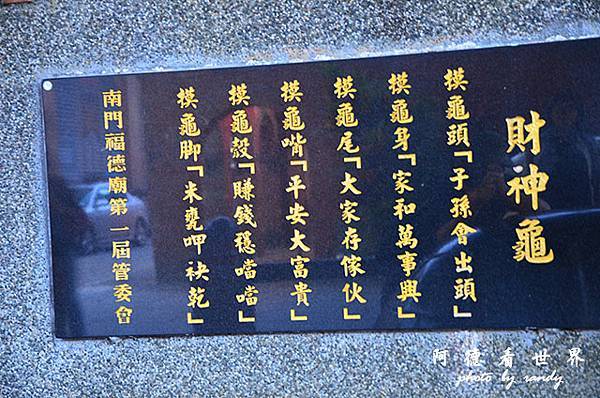 財神龜
摸龜頭「子孫會出頭」
摸龜身「家和萬事興」
摸龜尾「大家存傢伙」
摸龜嘴「平安大富貴」
摸龜殼「賺錢穩噹噹」
摸龜脚「米甕呷袂乾」
南門福德廟第一屆管委會
阿德看世界
photo by randy